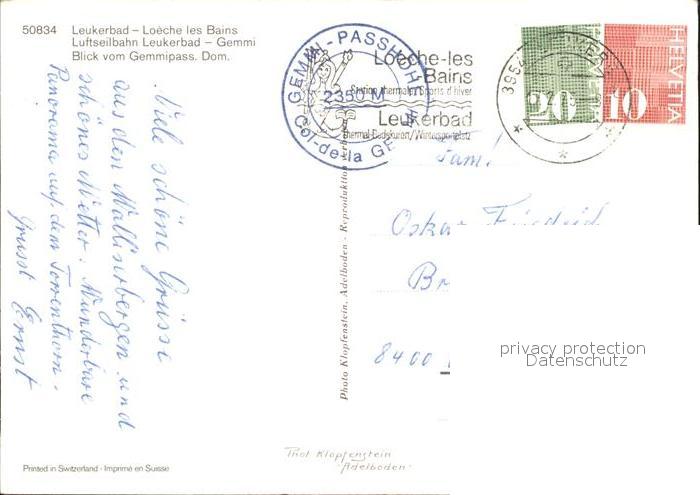 50834 Leukerbad – Loèche les Bains
Luftseilbahn Leukerbad – Gemmi
Blick vom Gemmipass. Dom.
Viele schöne Grüsse
aus den Walliserbergen und
schönes Wetter. Wunderbare
Panorama auf dem Torrenthorn.
Grusst Ernst
GEMMI-PASSHÖHE
2350 M
Col-de-la GEMMI
Loèche-les
-Bains
Station thermale/Sports d'hiver
Leukerbad
Thermal-Badekurort/Wintersportplatz
3954 LEUKERBAD
HELVETIA
20
HELVETIA
10
Fam.
Oskar Friedrich
Br
8400
Photo Klopfenstein, Adelboden - Reproduktion verboten
privacy protection
Datenschutz
Phot Klopfenstein
Adelboden
Printed in Switzerland - Imprimé en Suisse